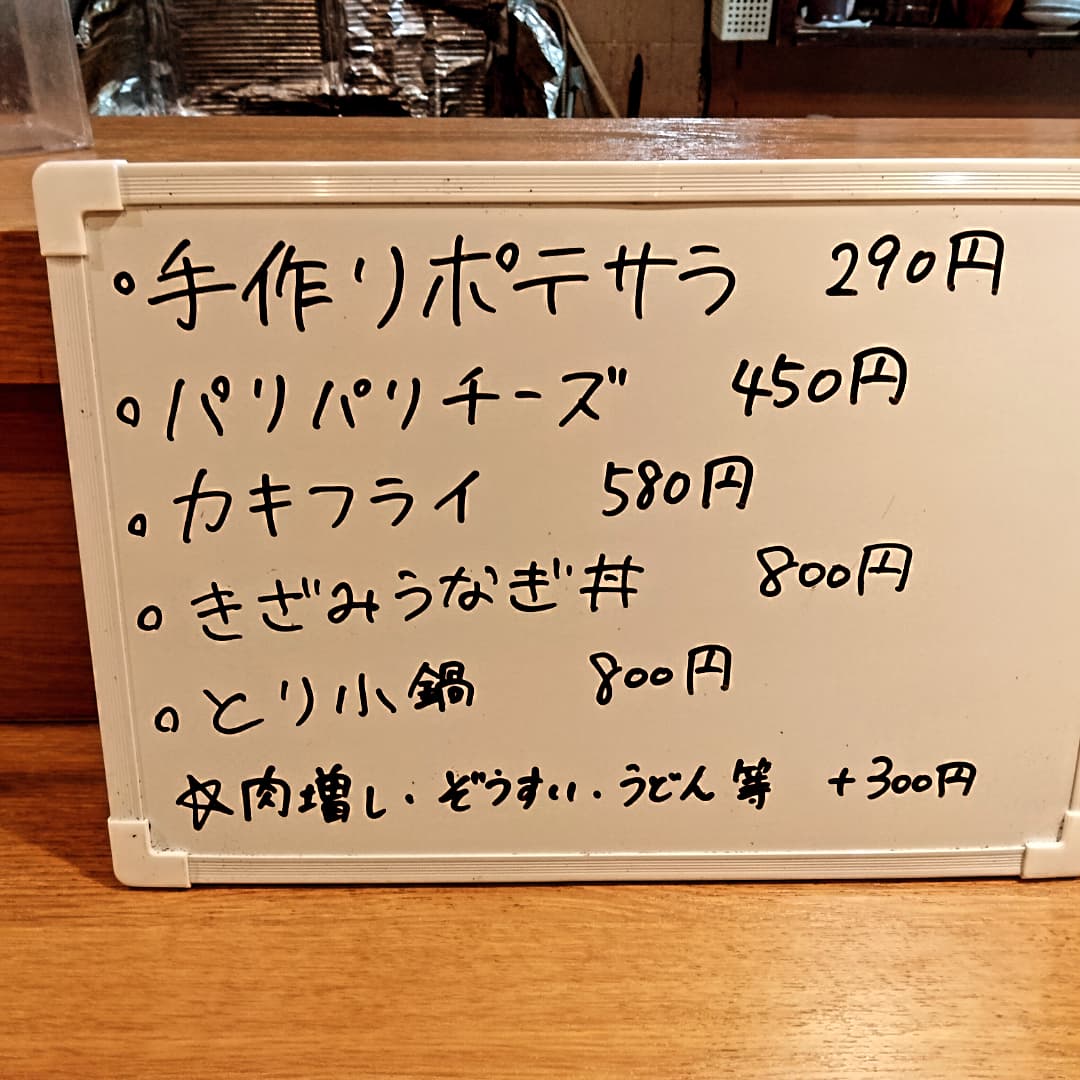 。手作りポテサラ 290円
。パリパリチーズ 450円
。カキフライ 580円
。きざみうなぎ丼 800円
。とり小鍋 800円
☆肉増し・ぞうすい・うどん等 +300円